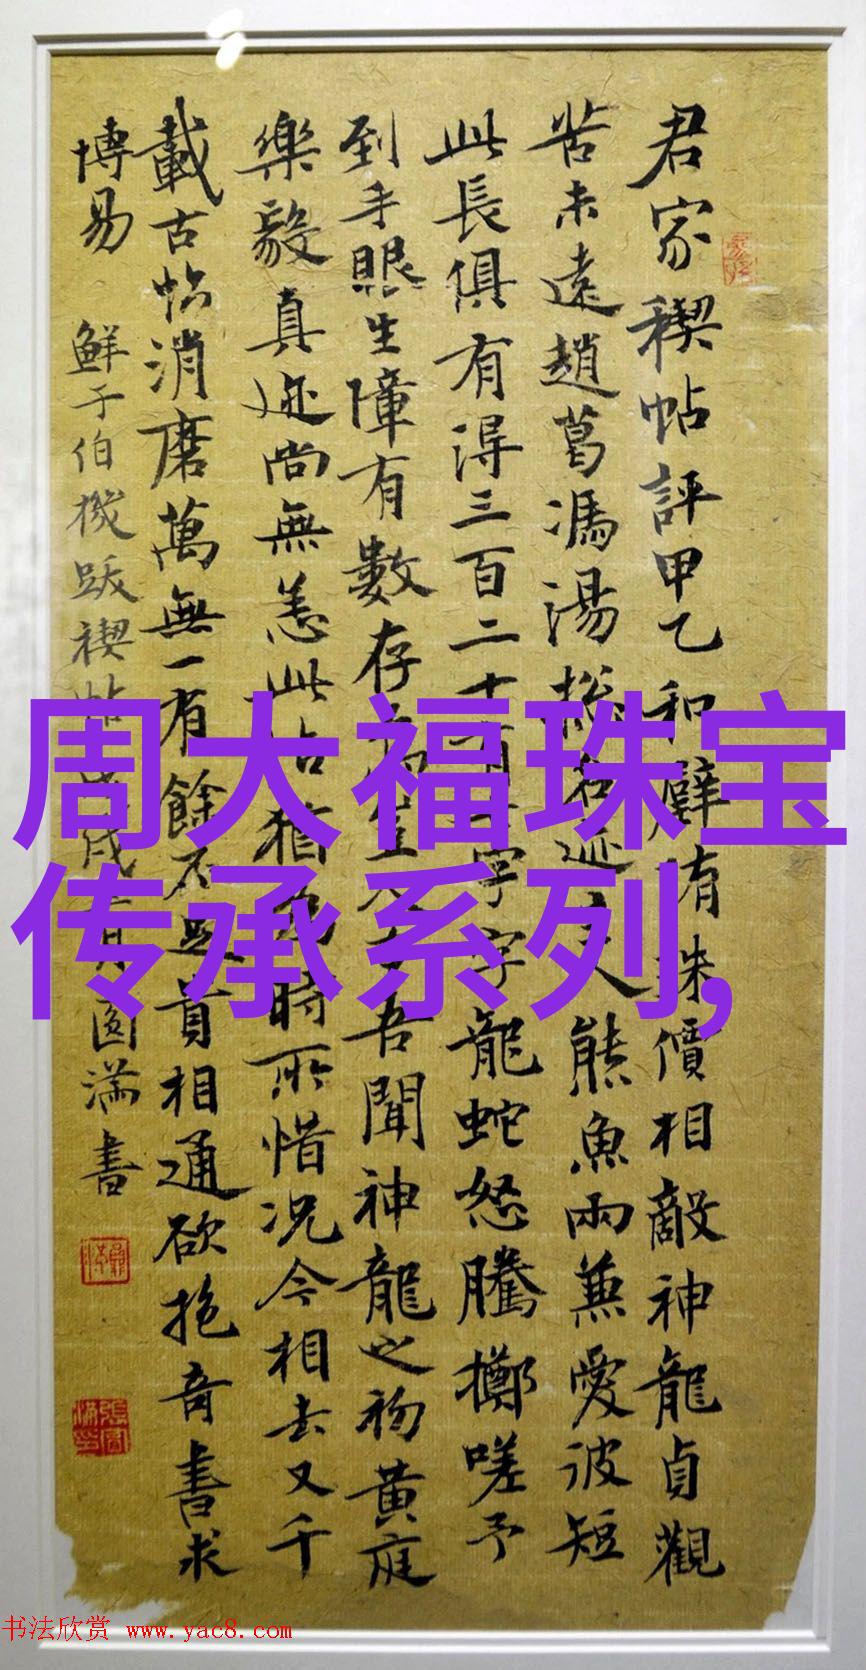 君家稧帖評甲乙和璧珠價相敵神龍貞觀
苦未遠趙葛馮湯揔名迹熊魚兩兼愛波短
此長俱有得三百二十有字字龍蛇怒騰擲嗟予
到手眼生障有數存吾聞神龍之初黃庭
樂毅真迹尚無恙此帖猶為時所惜況今相去又千
載古帖消磨萬無一有餘不足貴相通欲抱奇書求
博易 鮮于伯機跋禊帖戌圓滿書
周大福珠宝
传承系列,
书法欣赏 www.yac8.com